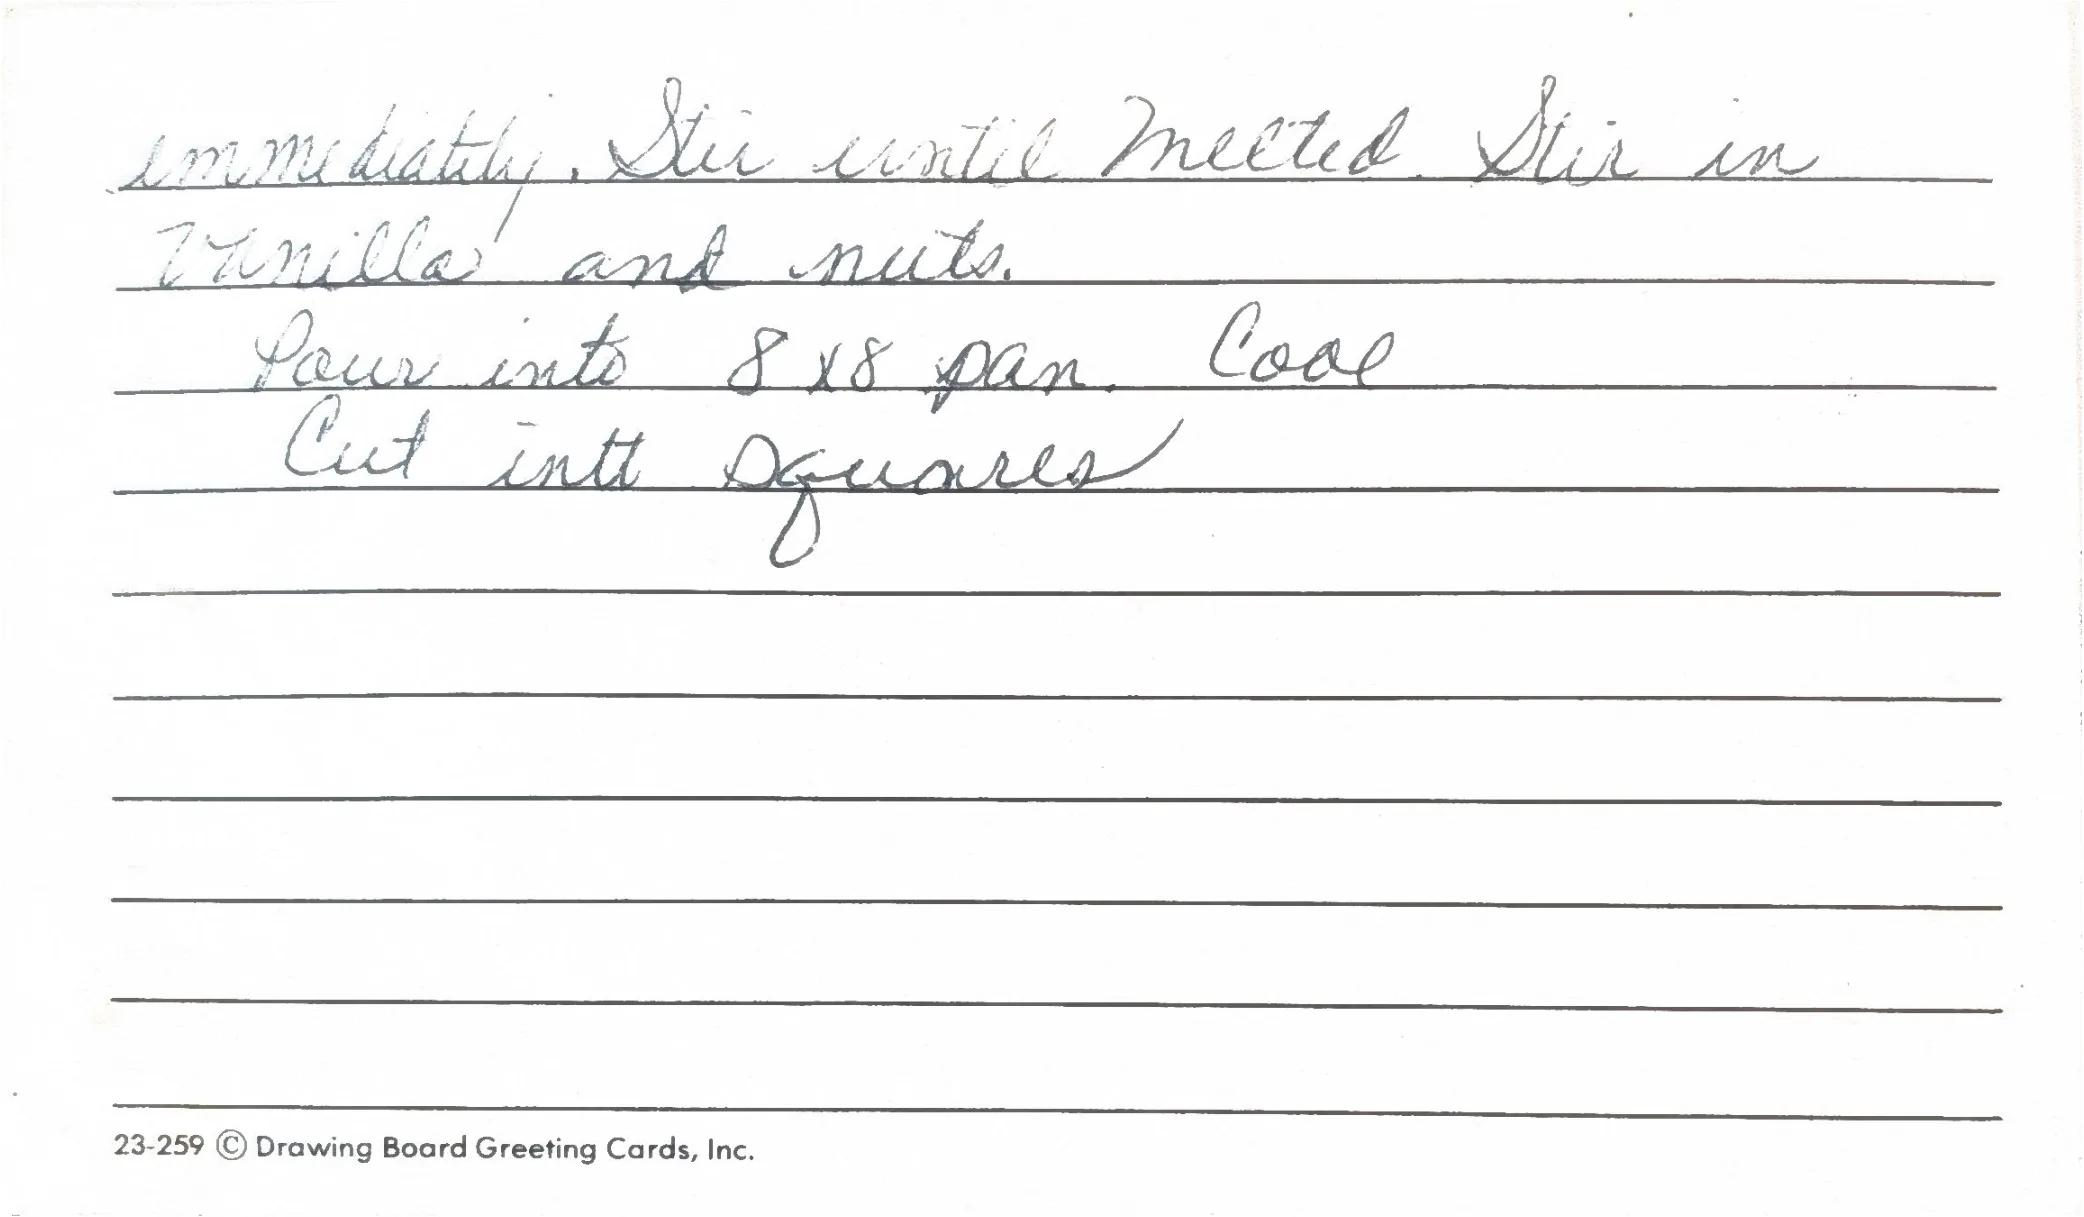 immediately. Stir until Melted. Stir in
Vanilla and nuts.
Pour into 8x8 pan. Cool
Cut into squares
23-259 © Drawing Board Greeting Cards, Inc.